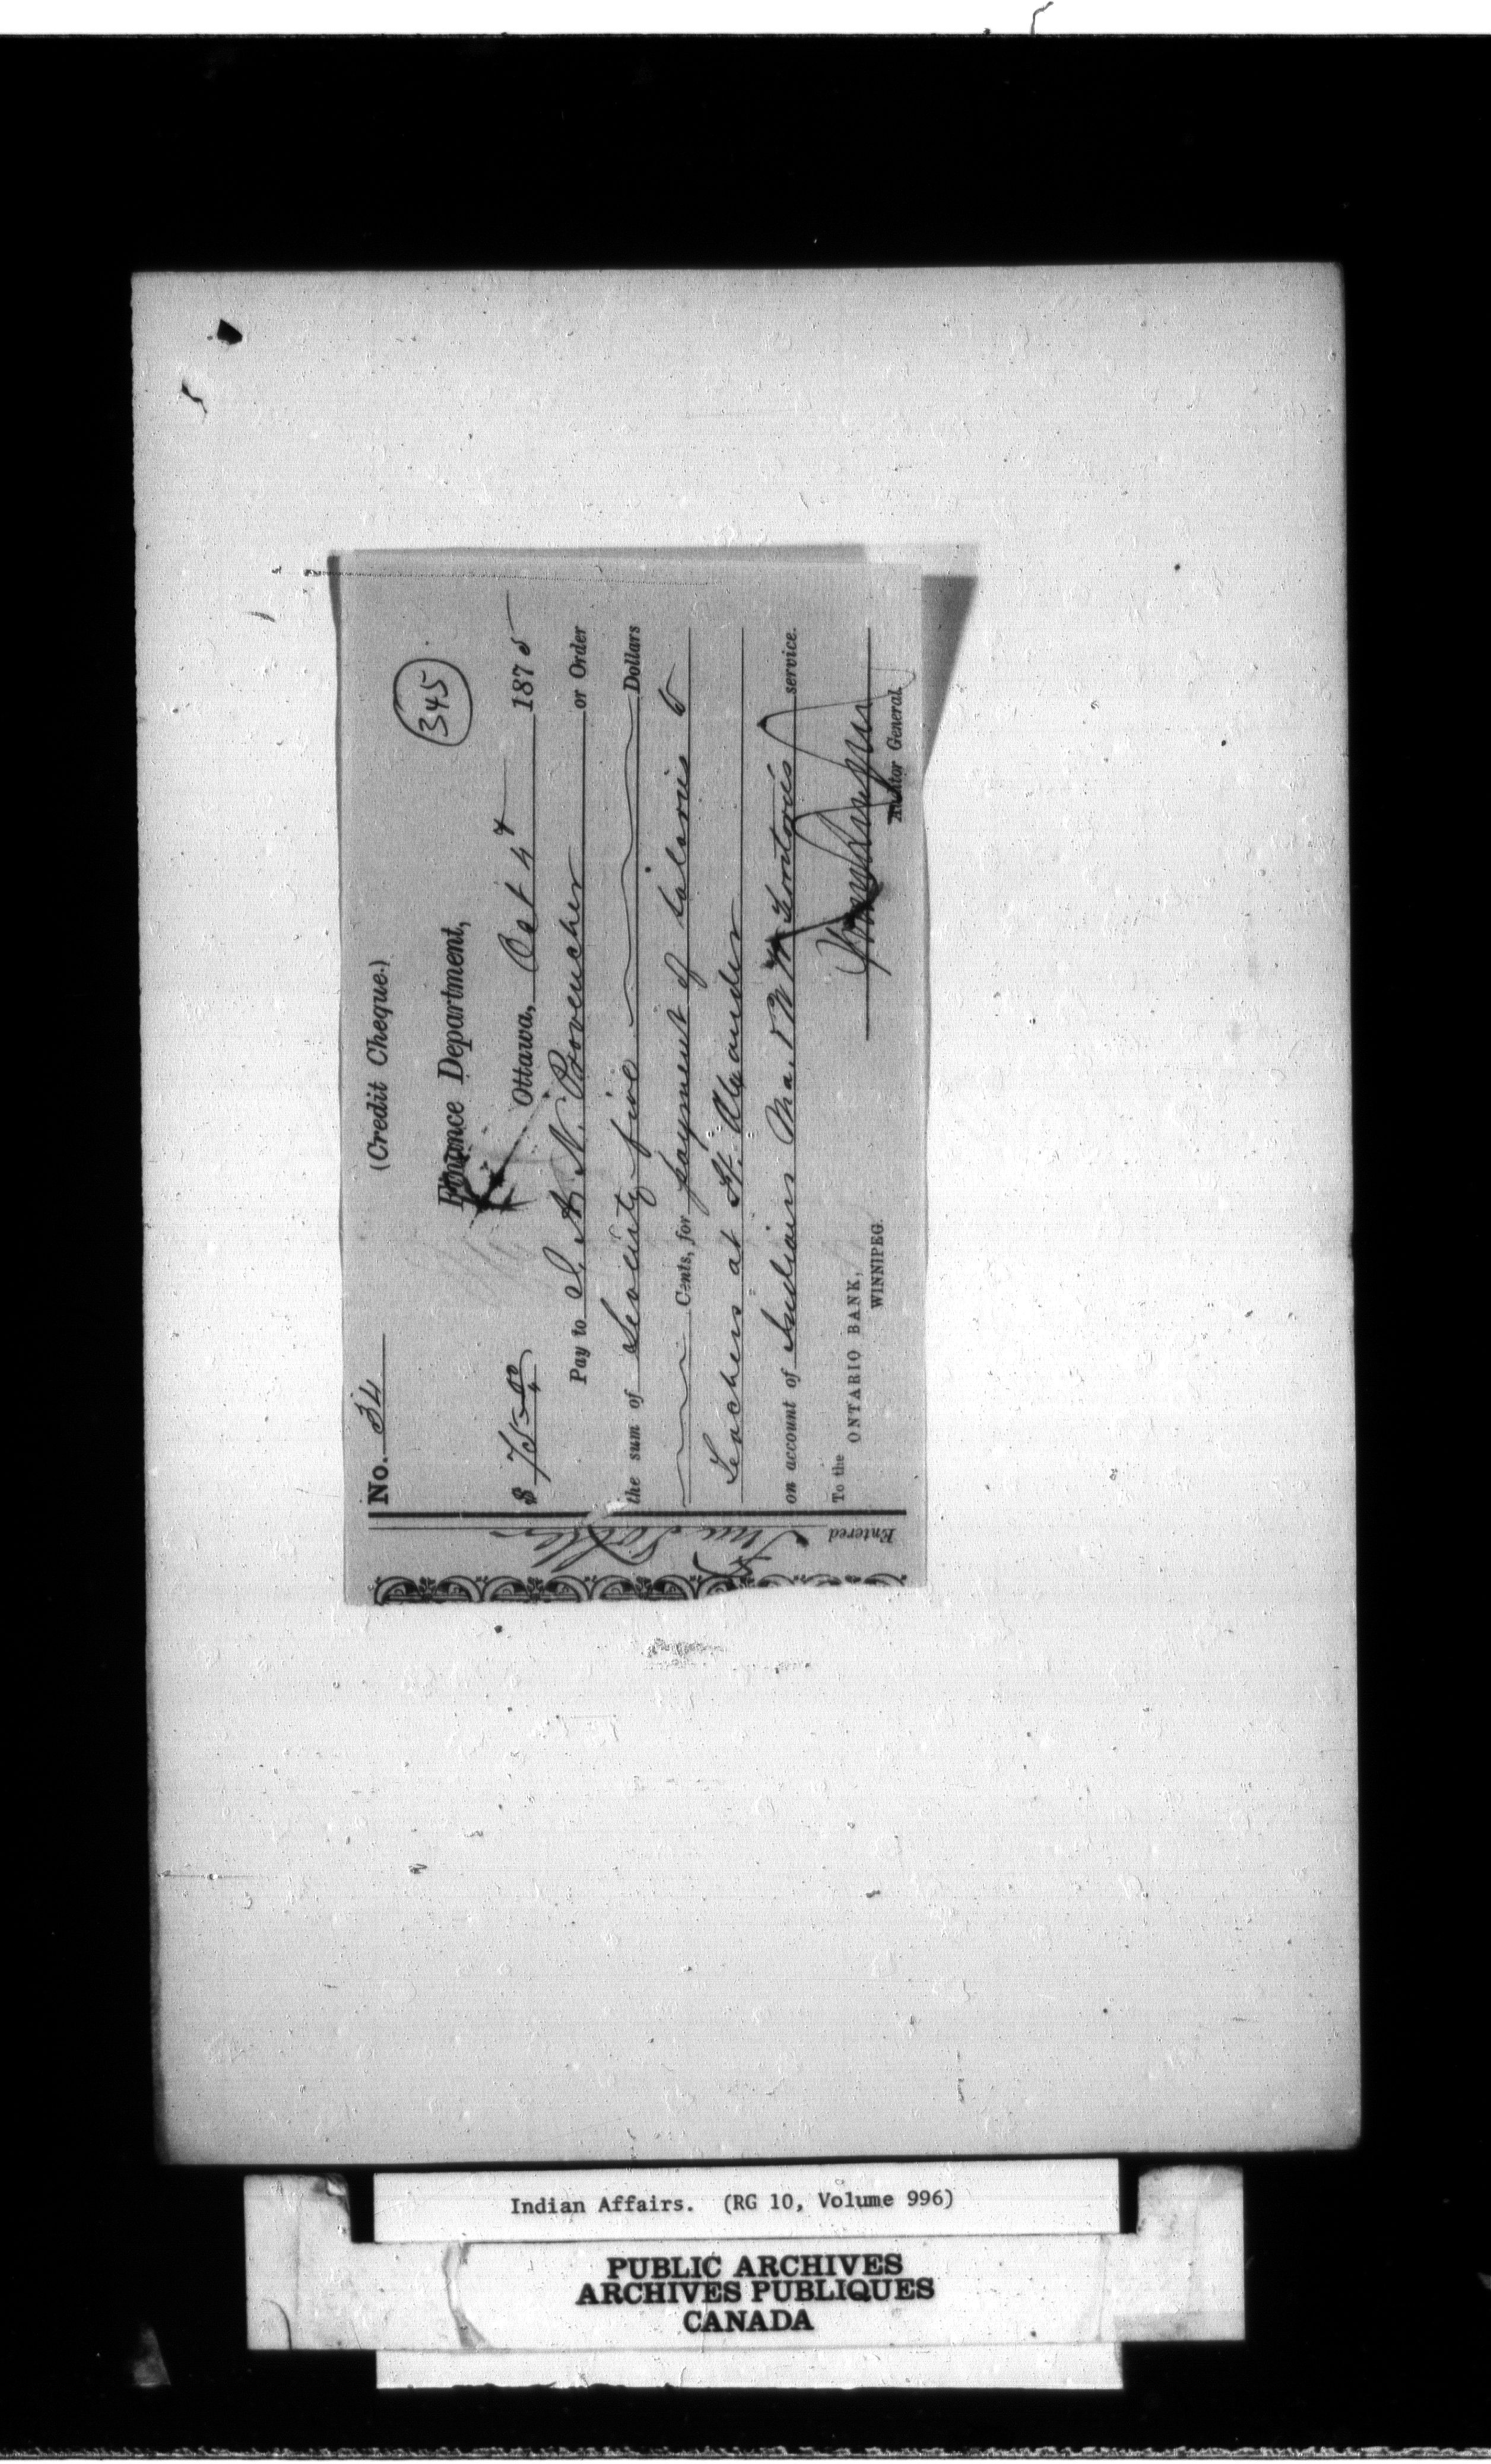 No. 34
(Credit Cheque.)
345
Finance Department,
$ 75 00
Ottawa, Oct 4th 1875
Pay to J. A. N. Provencher or Order
the sum of Seventy five Dollars
Cents, for payment of salaries to
Teachers at St.
on account of Indians Ma. & N W Territories service.
To the
ONTARIO BANK,
WINNIPEG.
Auditor General.
Entered
Indian Affairs. (RG 10, Volume 996)
PUBLIC ARCHIVES
ARCHIVES PUBLIQUES
CANADA